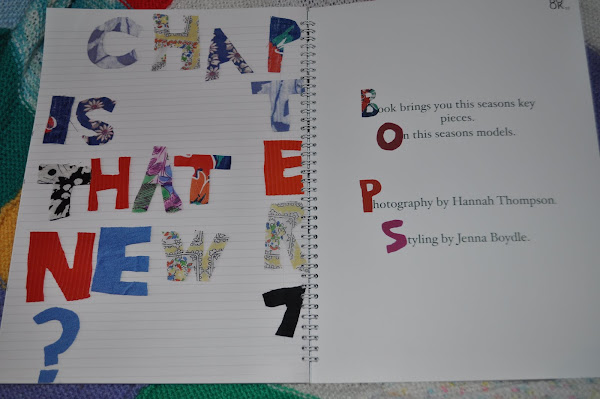 CHAPTER 7
IS
THAT
NEW
?
Book brings you this seasons key
pieces.
On this seasons models.
Photography by Hannah Thompson.
Styling by Jenna Boydle.